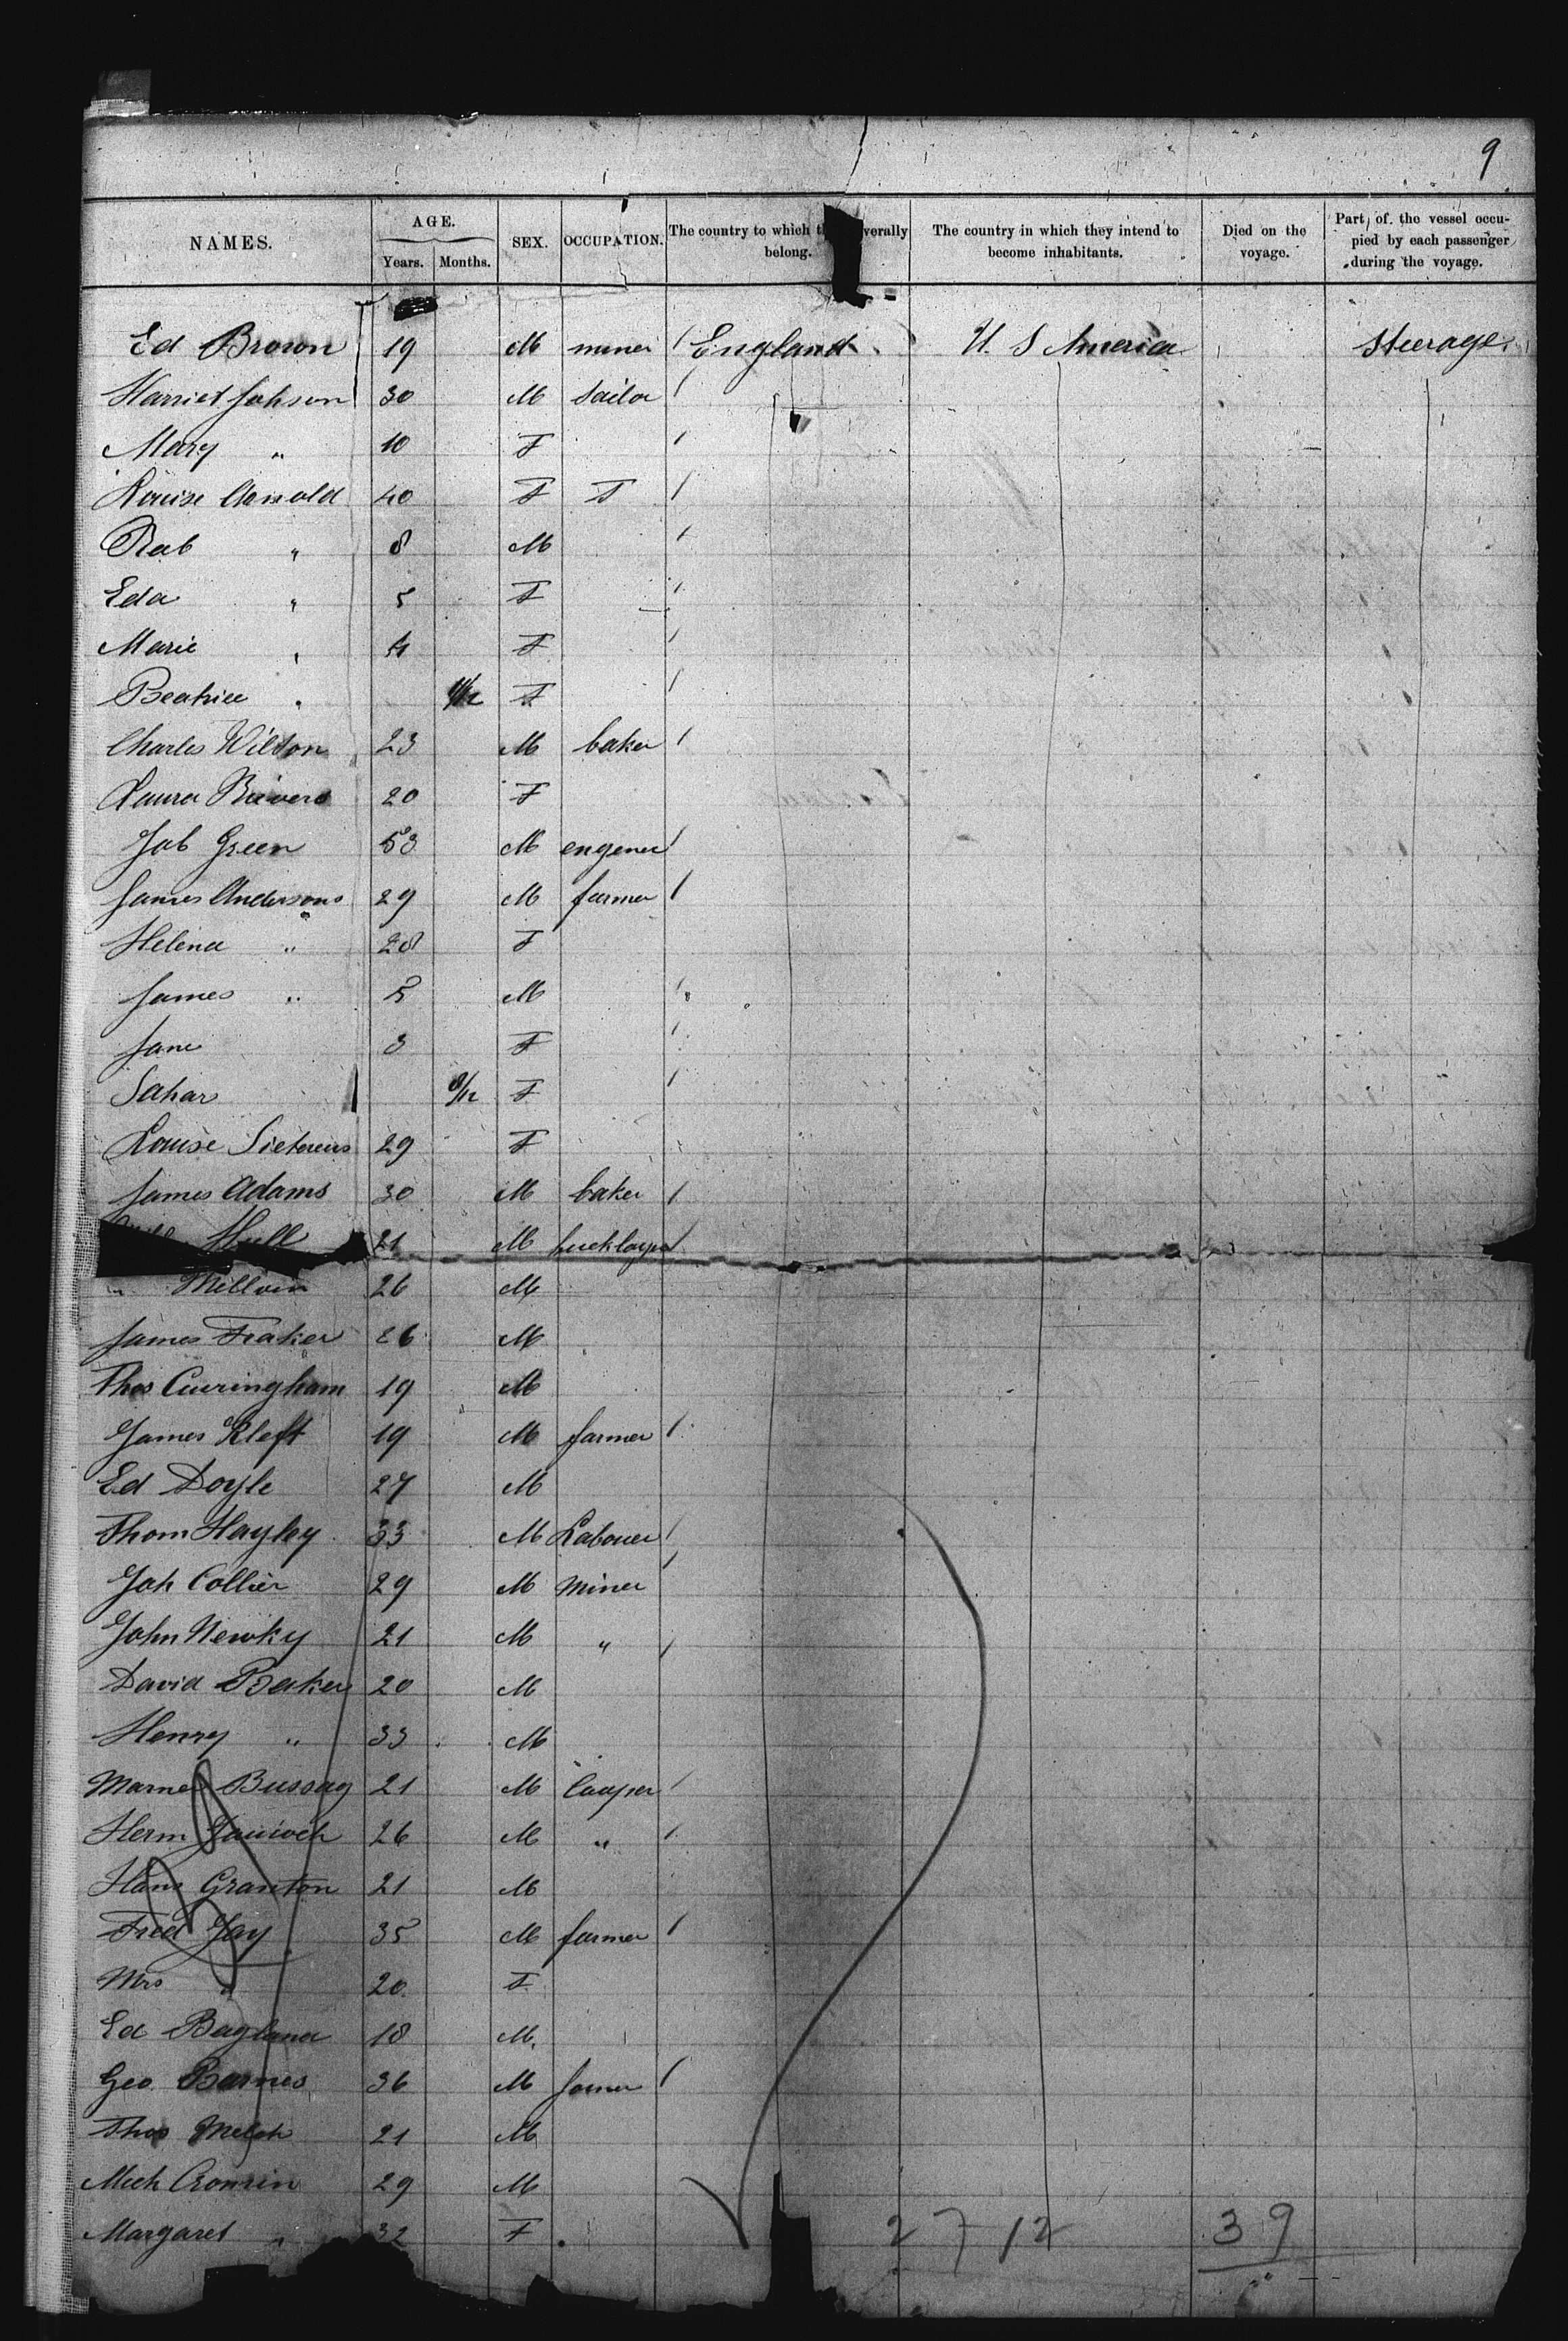 9
NAMES. AGE. Years. Months. SEX. OCCUPATION. The country to which verally belong. The country in which they intend to become inhabitants. Died on the voyage. Part of the vessel occupied by each passenger during the voyage.
Ed Brown 19 M miner England U. S America Steerage
Harriet Johson 30 M Sailor
Mary " 10 F
Louise Arnold 40 F F
Rob " 8 M
Eda " 5 F
Marie " 4 F
Beatrice " 11/12 F
Charles Wilson 23 M baker
Laura 20 F
Job Green 53 M engener
James Andersons 29 M farmer
Helena " 28 F
James " 5 M
Jane 3 F
Sahar 8/12 F
Louise 29 F
James Adams 30 M baker
Hull 21 M
" 26 M
James 26 M
Thos Cuningham 19 M
James Kleft 19 M farmer
Ed Doyle 27 M
Thom Hayley 33 M Labouer
Joh Collier 29 M Miner
John Newky 21 M "
David Baker 20 M
Henry " 33 M
Bussag 21 M Couper
Herm 26 M "
Hans Granton 21 M
Fred Jay 35 M farmer
Mrs " 20 F
Ed Bagland 18 M
Geo Barnes 36 M farmer
Thos Welch 21 M
Mich Cronnin 29 M
Margaret " 32 F
27 12 39